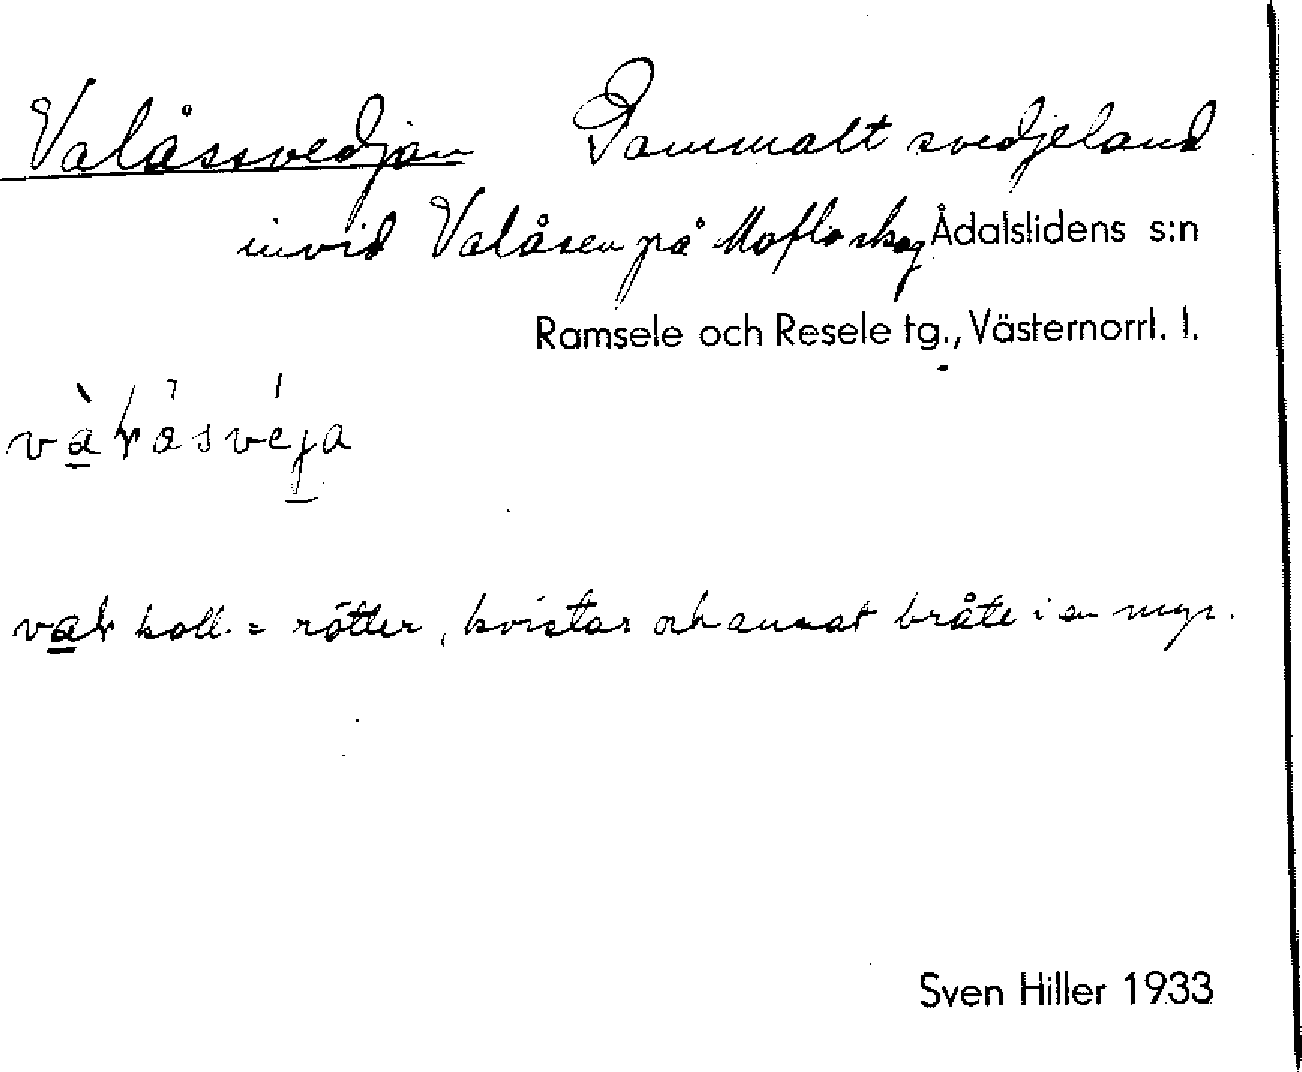 Valåssvedjan Gammalt svedjeland
invid Valåsen på Moflo skog Ådalslidens s:n
Ramsele och Resele tg., Västernorrl. l.
koll. = rötter, kvistar och annat bråte i en myr.
Sven Hiller 1933